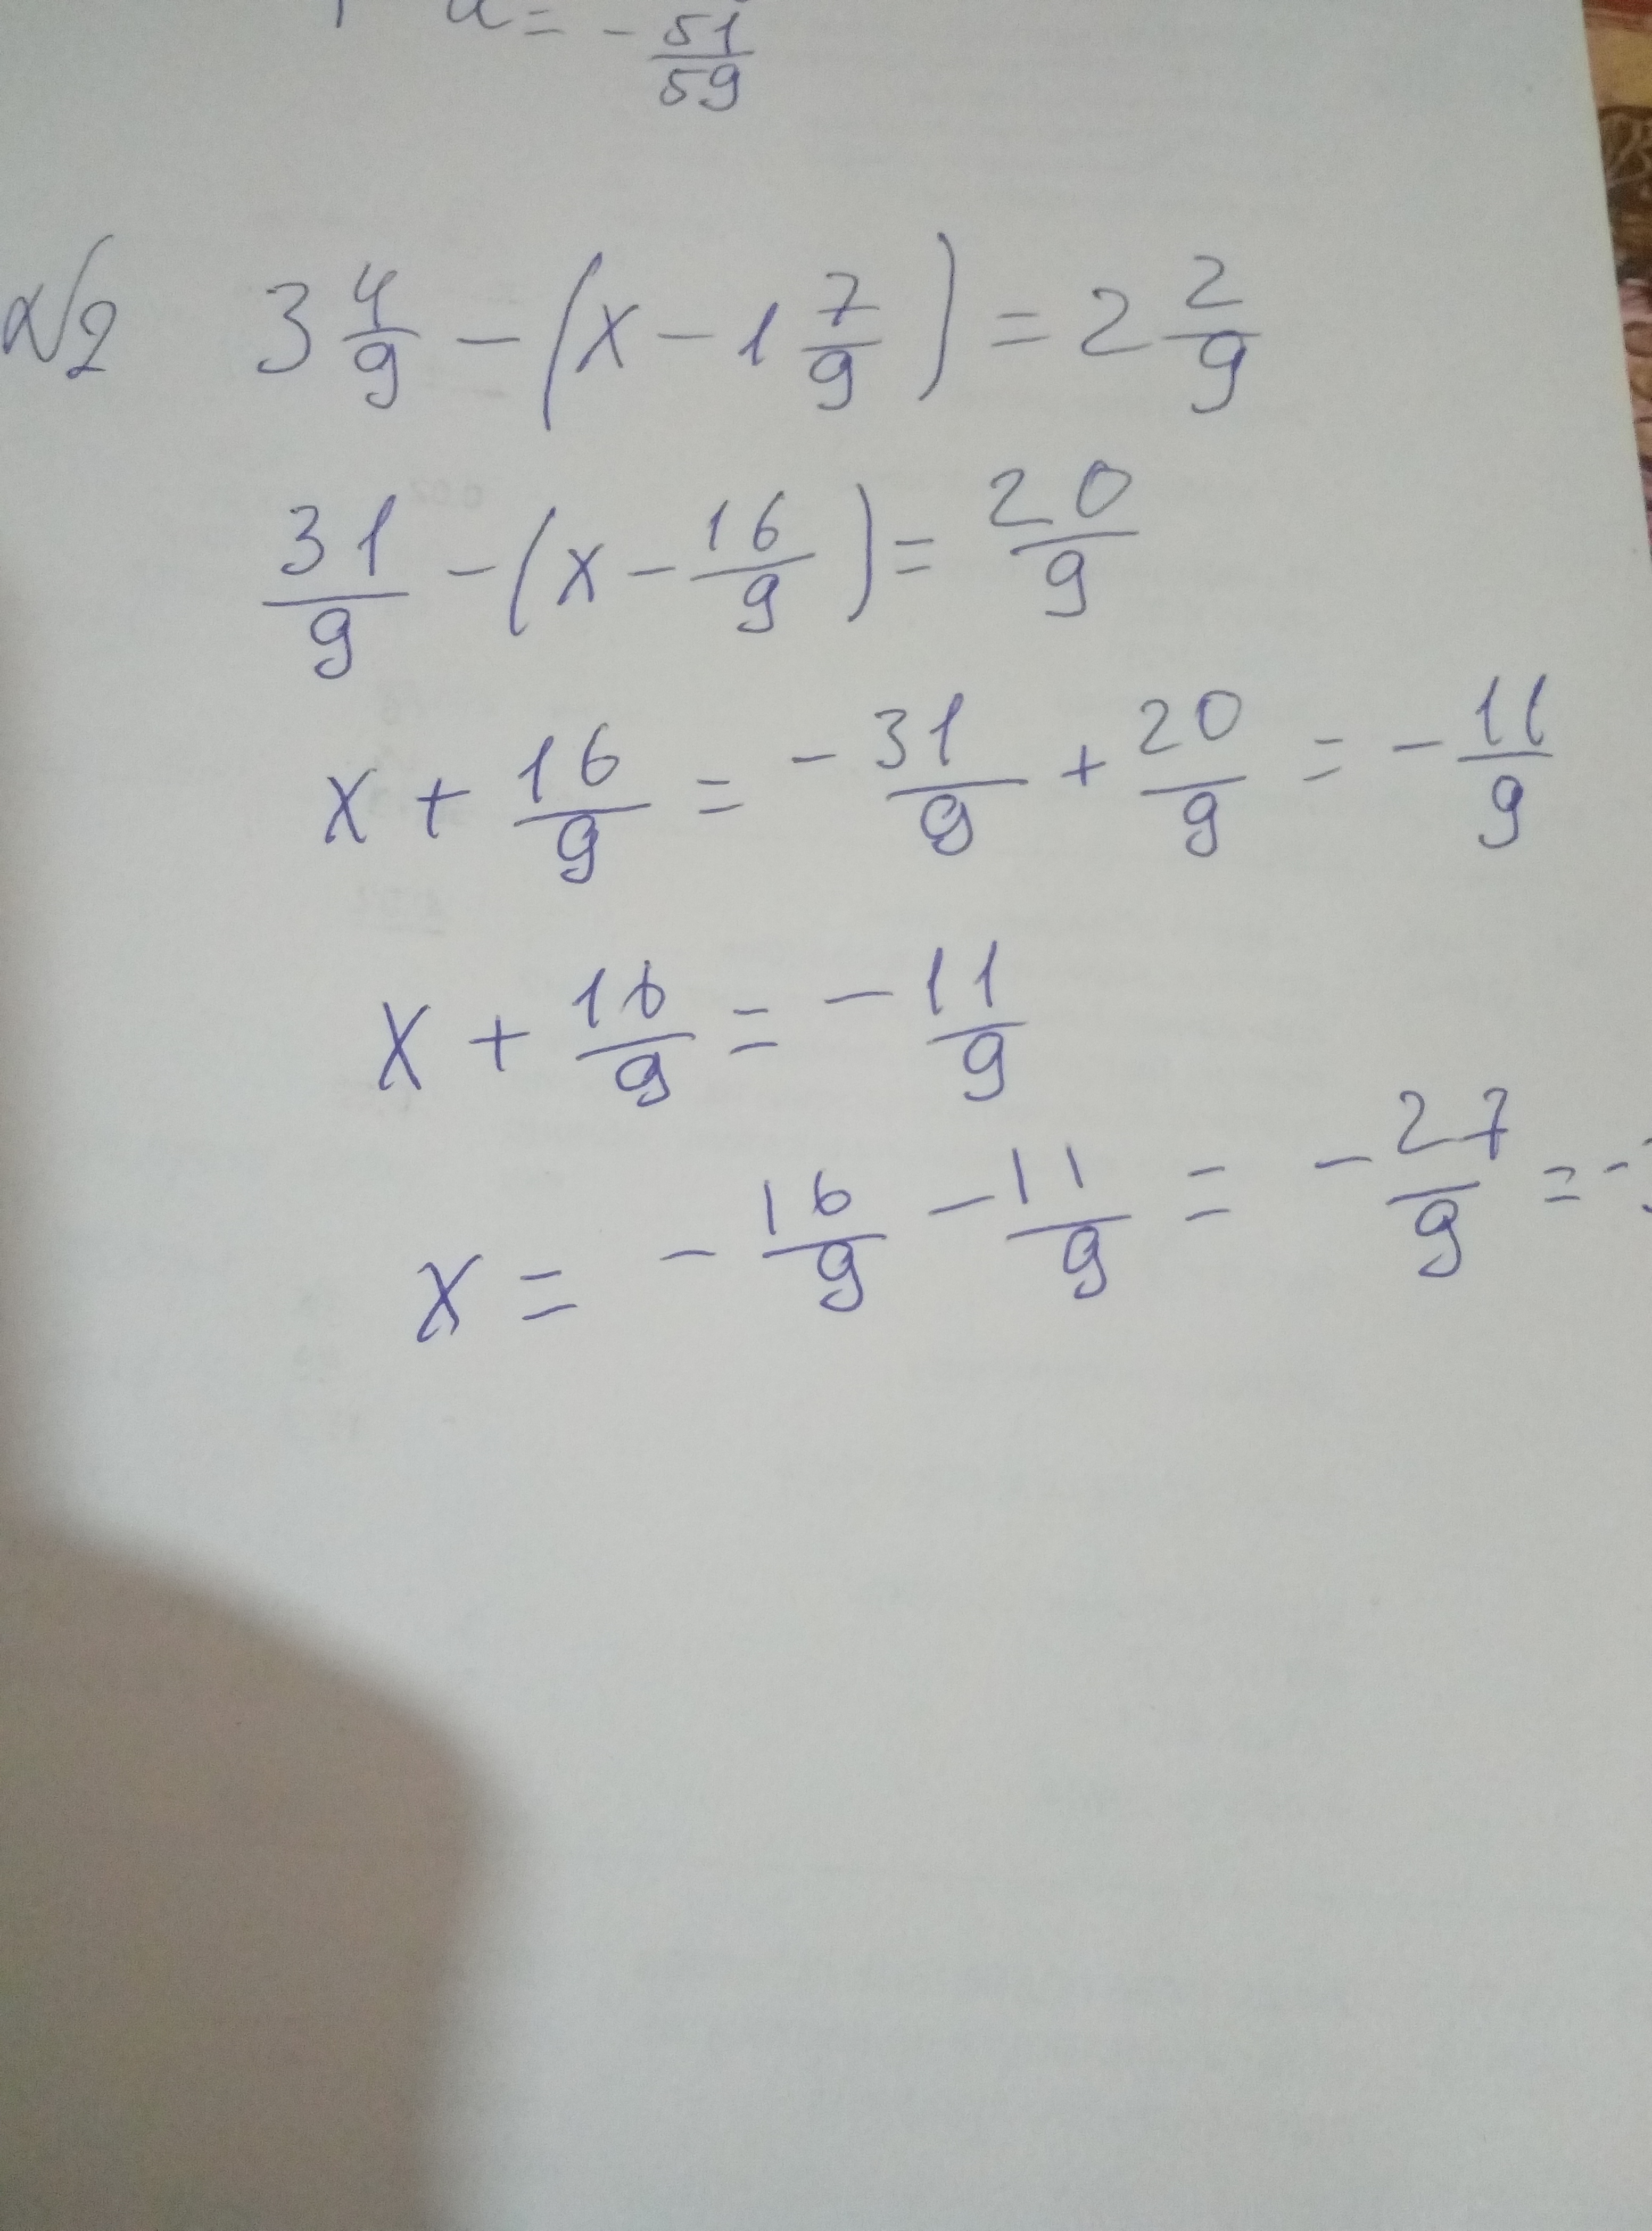 = - 51/59
№2 3 4/9 - (x - 1 7/9) = 2 2/9
31/9 - (x - 16/9) = 20/9
x + 16/9 = - 31/9 + 20/9 = - 11/9
x + 16/9 = - 11/9
x = - 16/9 - 11/9 = - 27/9 = -